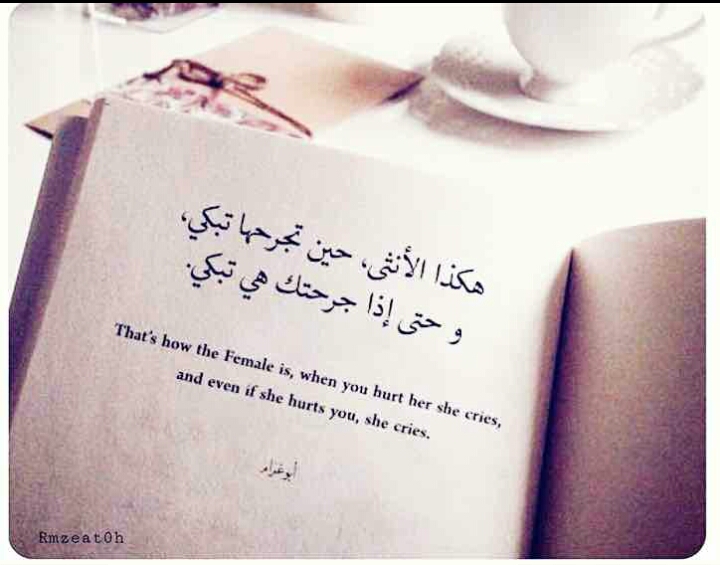 هكذا الأنثى، حين تجرحها تبكي،
و حتى إذا جرحتك هي تبكي.
That's how the Female is, when you hurt her she cries,
and even if she hurts you, she cries.
أبوغرام
Rmzeat0h